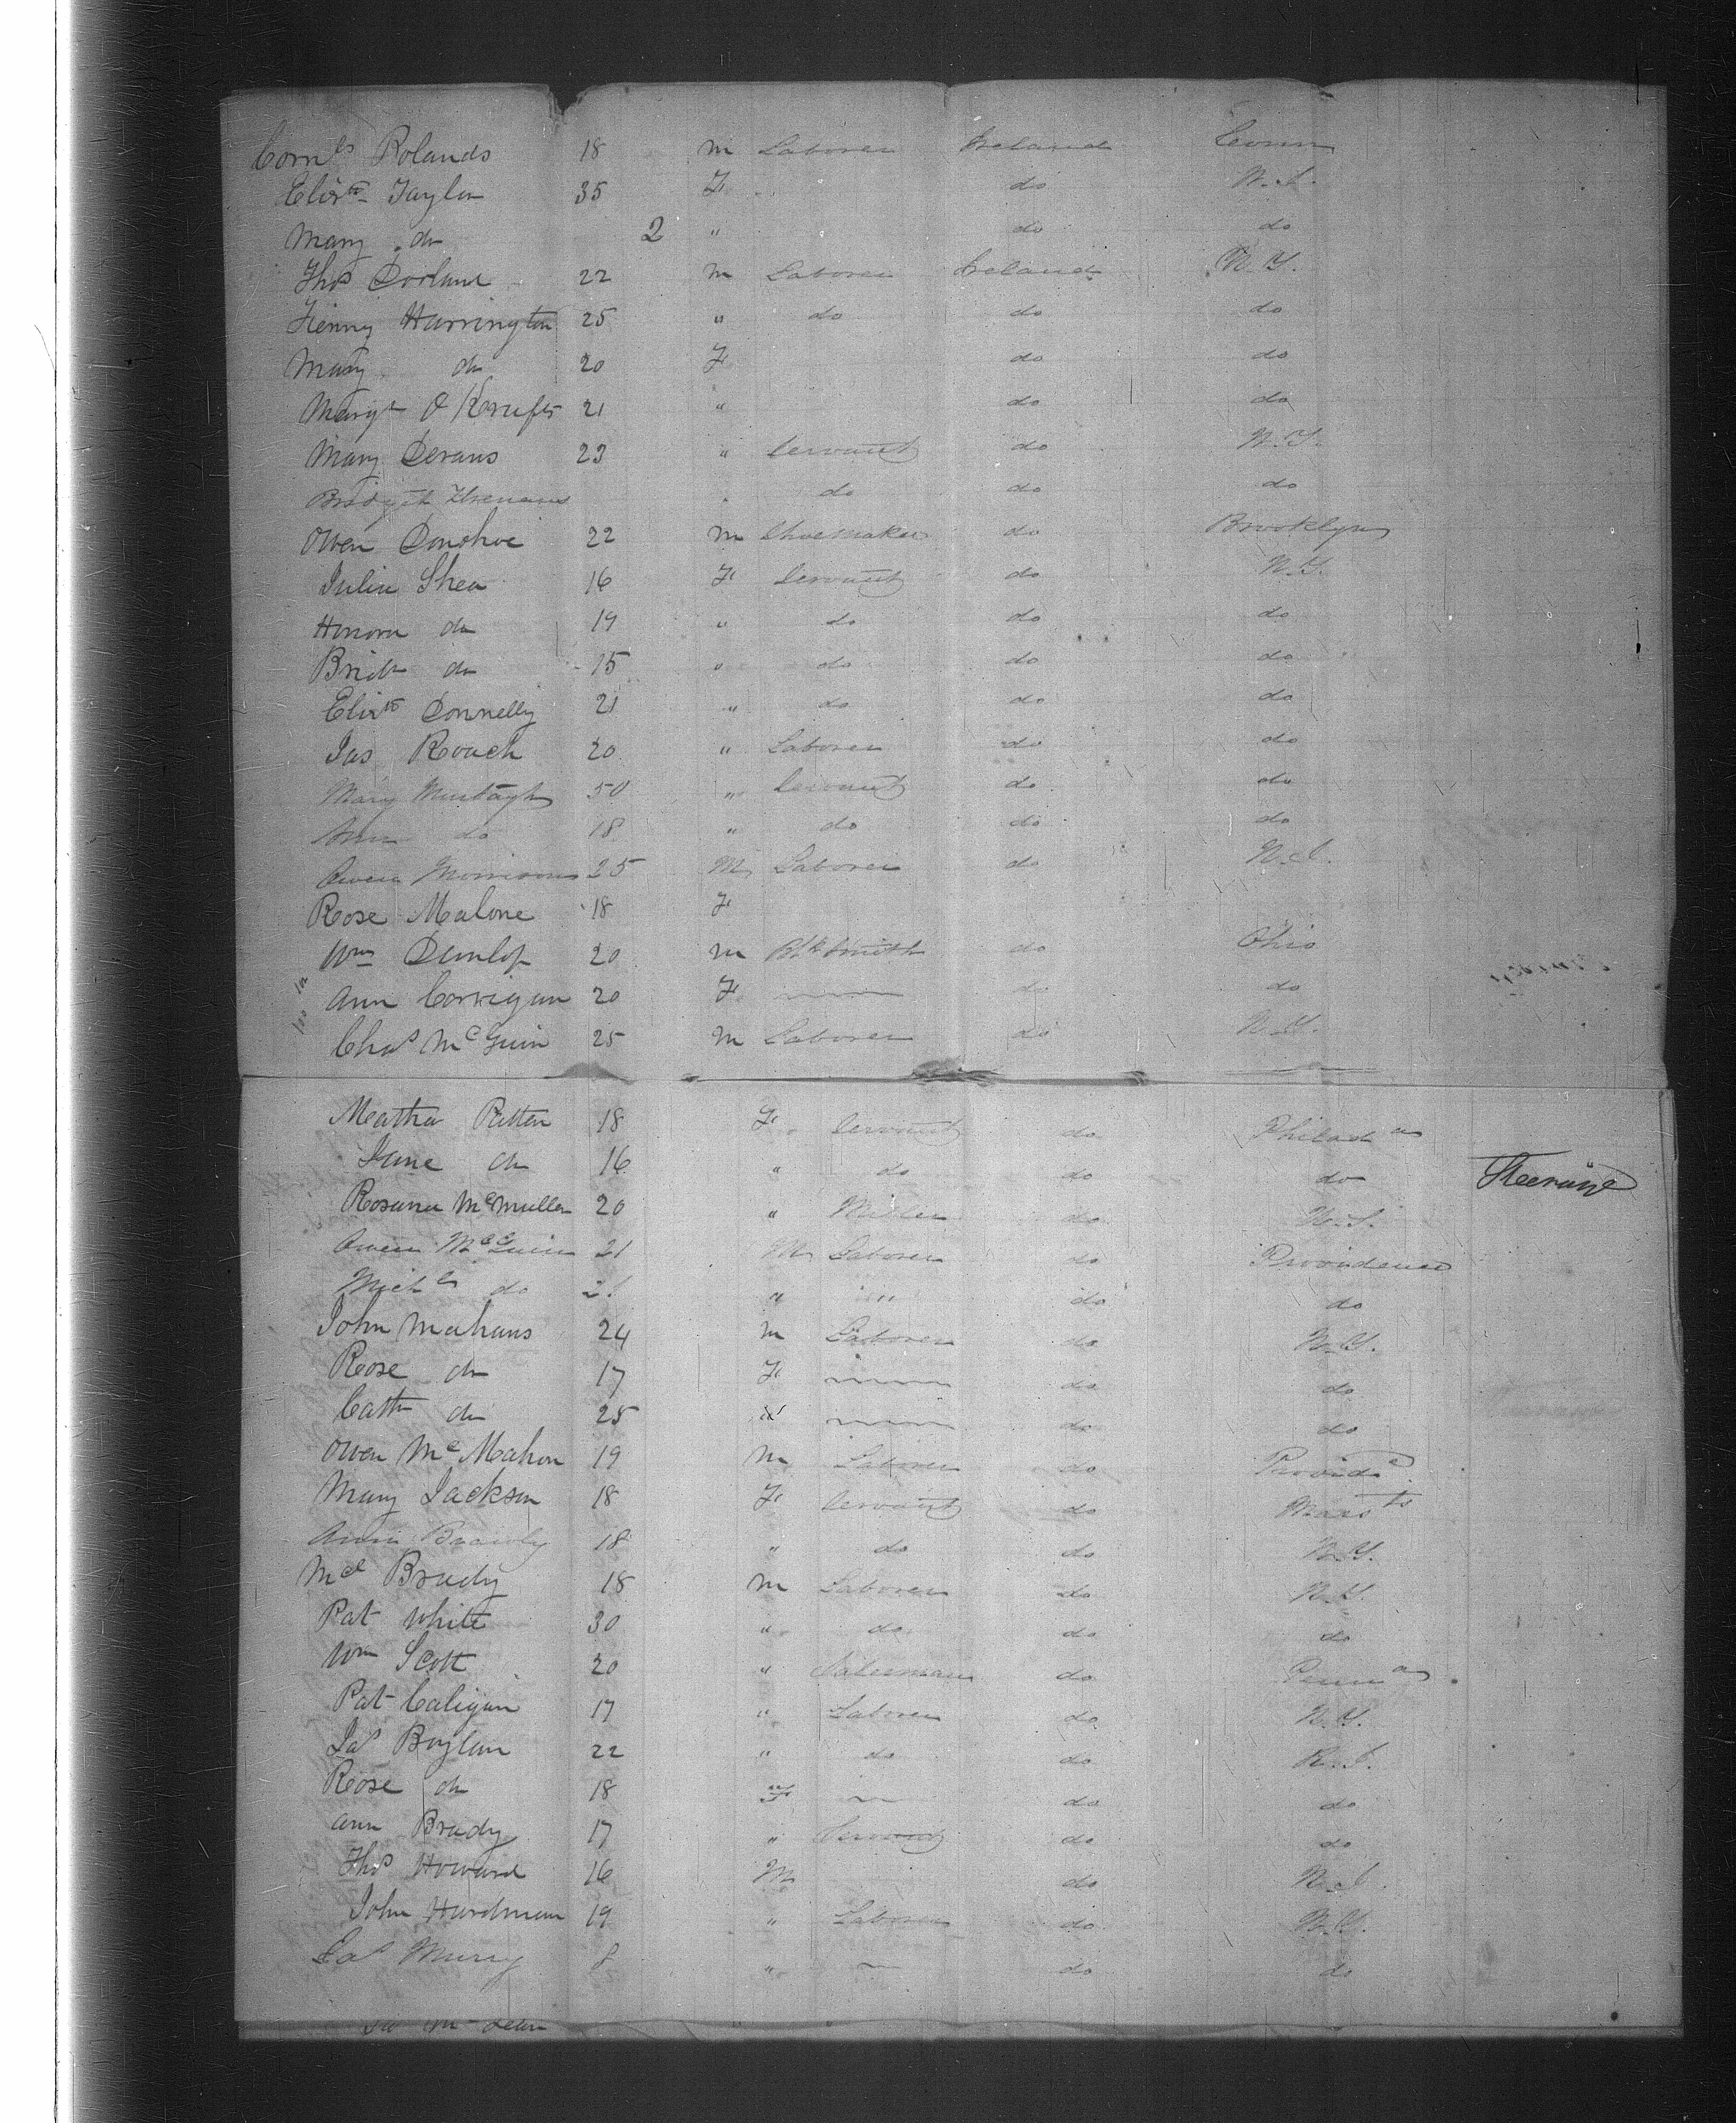 Corns Rolands 18 m Laborer Ireland Conn
Elizth Taylor 35 F do N.J.
Mary do 2 " do do
Thos Dorland 22 m Laborer Ireland N.Y.
Henry Harrington 25 " do do do
Mary do 20 F do do
Margt O 21 " do do
Mary Devans 23 " Servant do N.Y.
Bridget do do do
Owen Donohoe 22 m Shoemaker do Brooklyn
Julia Shea 16 F Servant do N.Y.
Honora do 19 " do do do
Bridt do 15 " do do do
Elizth Donnelly 21 " do do do
Jas Roach 20 " Laborer do do
Mary Murtagh 50 " Servant do do
Ann do 18 " do do do
Owen Morrison 25 M Laborer do N.J.
Rose Malone 18 F
Wm Dunlop 20 m Blksmith do Ohio
Ann Corrigan 20 F do do
Chas McGuin 25 m Laborer do N.Y.
Matha Patten 18 F Servant do Philada
Jane do 16 " do do do Steerage
Rosana McMullen 20 " do N.J.
Owen McGuin 21 M Laborer do Providence
Michl do 21 " " do do
John Mahans 24 m Laborer do N.Y.
Rose do 17 F do do
Cath do 25 " do do
Owen McMahon 19 m Laborer do Provide
Mary Jackson 18 F Servant do Massts
Ann Brawly 18 " do do N.Y.
Ml Brady 18 m Laborer do N.Y.
Pat White 30 " do do do
Wm Scott 20 " Salesman do Penna
Pat Caligan 17 " Laborer do N.Y.
Jas Boylan 22 " do do R.I.
Rose do 18 F do do
Ann Brady 17 " Servant do do
Thos Howard 16 M do N.J.
John Hardman 19 " Laborer do N.Y.
Jas Murry 8 " do do